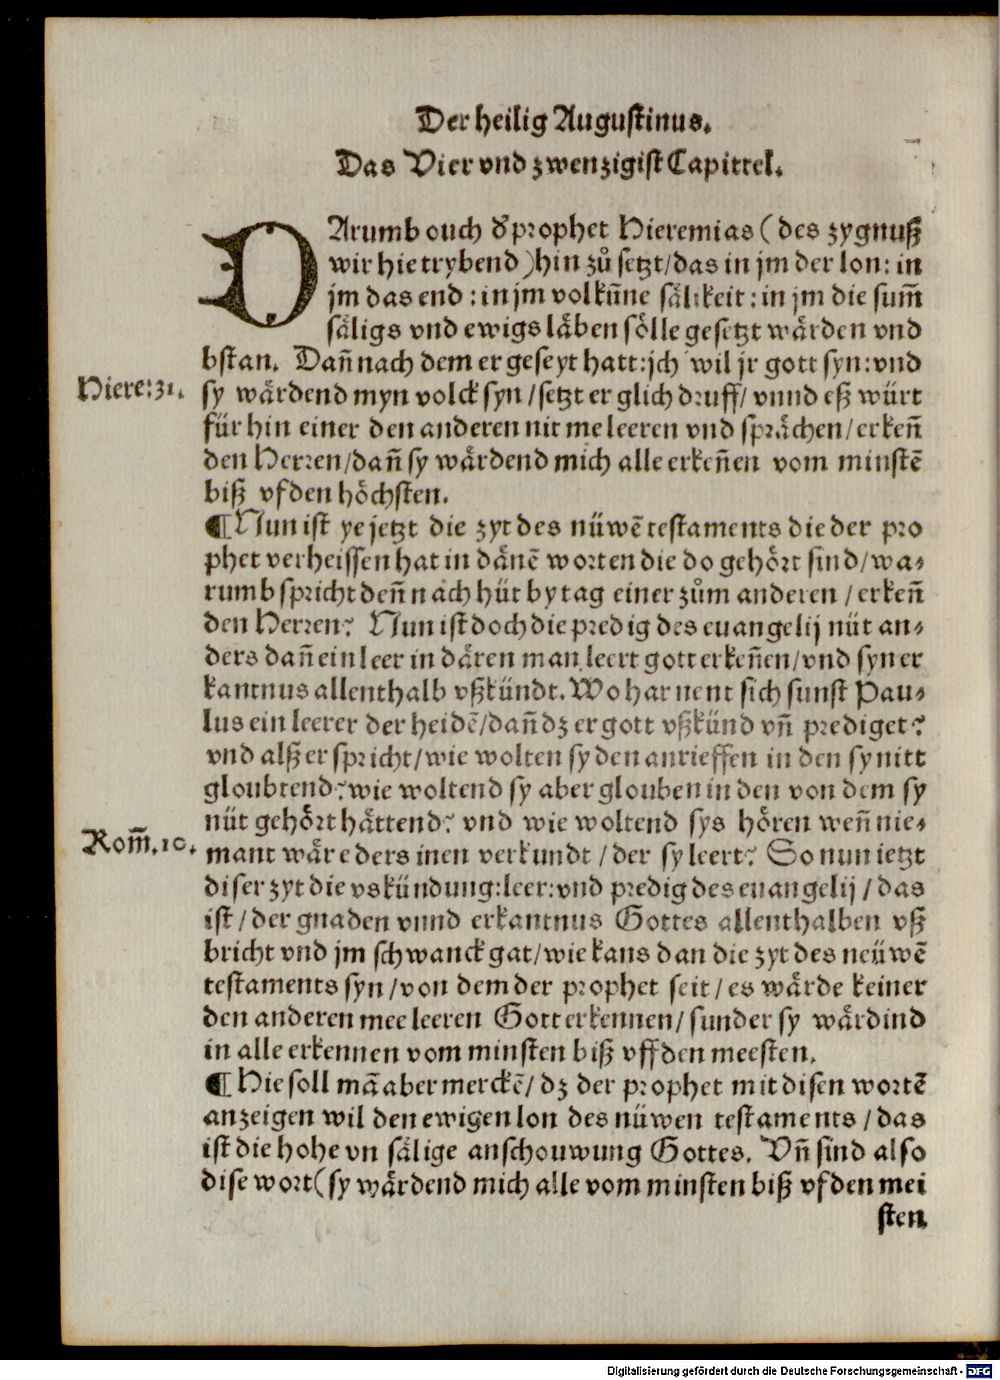 Der heilig Augustinus.
Das Vier vnd zwenzigist Capittel.
DArumb ouch d' prophet Hieremias (des zygnuß
wir hie trybend) hin zů setzt/das in jm der lon: in
jm das end: in jm volkūne sälikeit: in jm die sum̄
säligs vnd ewigs läben sölle gesetzt wärden vnd
bstan. Dan̄ nach dem er geseyt hatt: jch wil jr gott syn: vnd
Hiere: 31.
sy wärdend myn volck syn/setzt er glich druff/ vnnd eß würt
für hin einer den anderen nit me leeren vnd sprächen/erken̄
den Herren/dan̄ sy wärdend mich alle erken̄en vom minstē
biß vf den höchsten.
¶ Nun ist ye jetzt die zyt des nüwē testaments die der pro
phet verheissen hat in dänē worten die do gehört sind/wa⸗
rumb spricht den̄ nach hüt by tag einer zům anderen/erken̄
den Herren? Nun ist doch die predig des euangelij nüt an⸗
ders dan̄ ein leer in dären man leert gott erken̄en/vnd syn er
kantnus allenthalb vßkündt. Wo har nent sich sunst Pau⸗
lus ein leerer der heidē/dan̄ dz er gott vßkünd vn̄ prediget?
vnd alß er spricht/wie wolten sy den anrieffen in den sy nitt
gloubtend? wie woltend sy aber glouben in den von dem sy
nüt gehört hättend? vnd wie woltend sys hören wen̄ nie⸗
Rom̄. 10.
mant wäre ders inen verkundt/der sy leert? So nun ietzt
diser zyt die vskündung: leer: vnd predig des euangelij/das
ist/der gnaden vnnd erkantnus Gottes allenthalben vß
bricht vnd jm schwanck gat/wie kans dan die zyt des neüwē
testaments syn/von dem der prophet seit/es wärde keiner
den anderen mee leeren Gott erkennen/sunder sy wärdind
in alle erkennen vom minsten biß vff den meesten.
¶ Hie soll mā aber merckē/dz der prophet mit disen wortē
anzeigen wil den ewigen lon des nüwen testaments/das
ist die hohe vn sälige anschouwung Gottes. Vn̄ sind also
dise wort (sy wärdend mich alle vom minsten biß vf den mei
sten
Digitalisierung gefördert durch die Deutsche Forschungsgemeinschaft - DFG